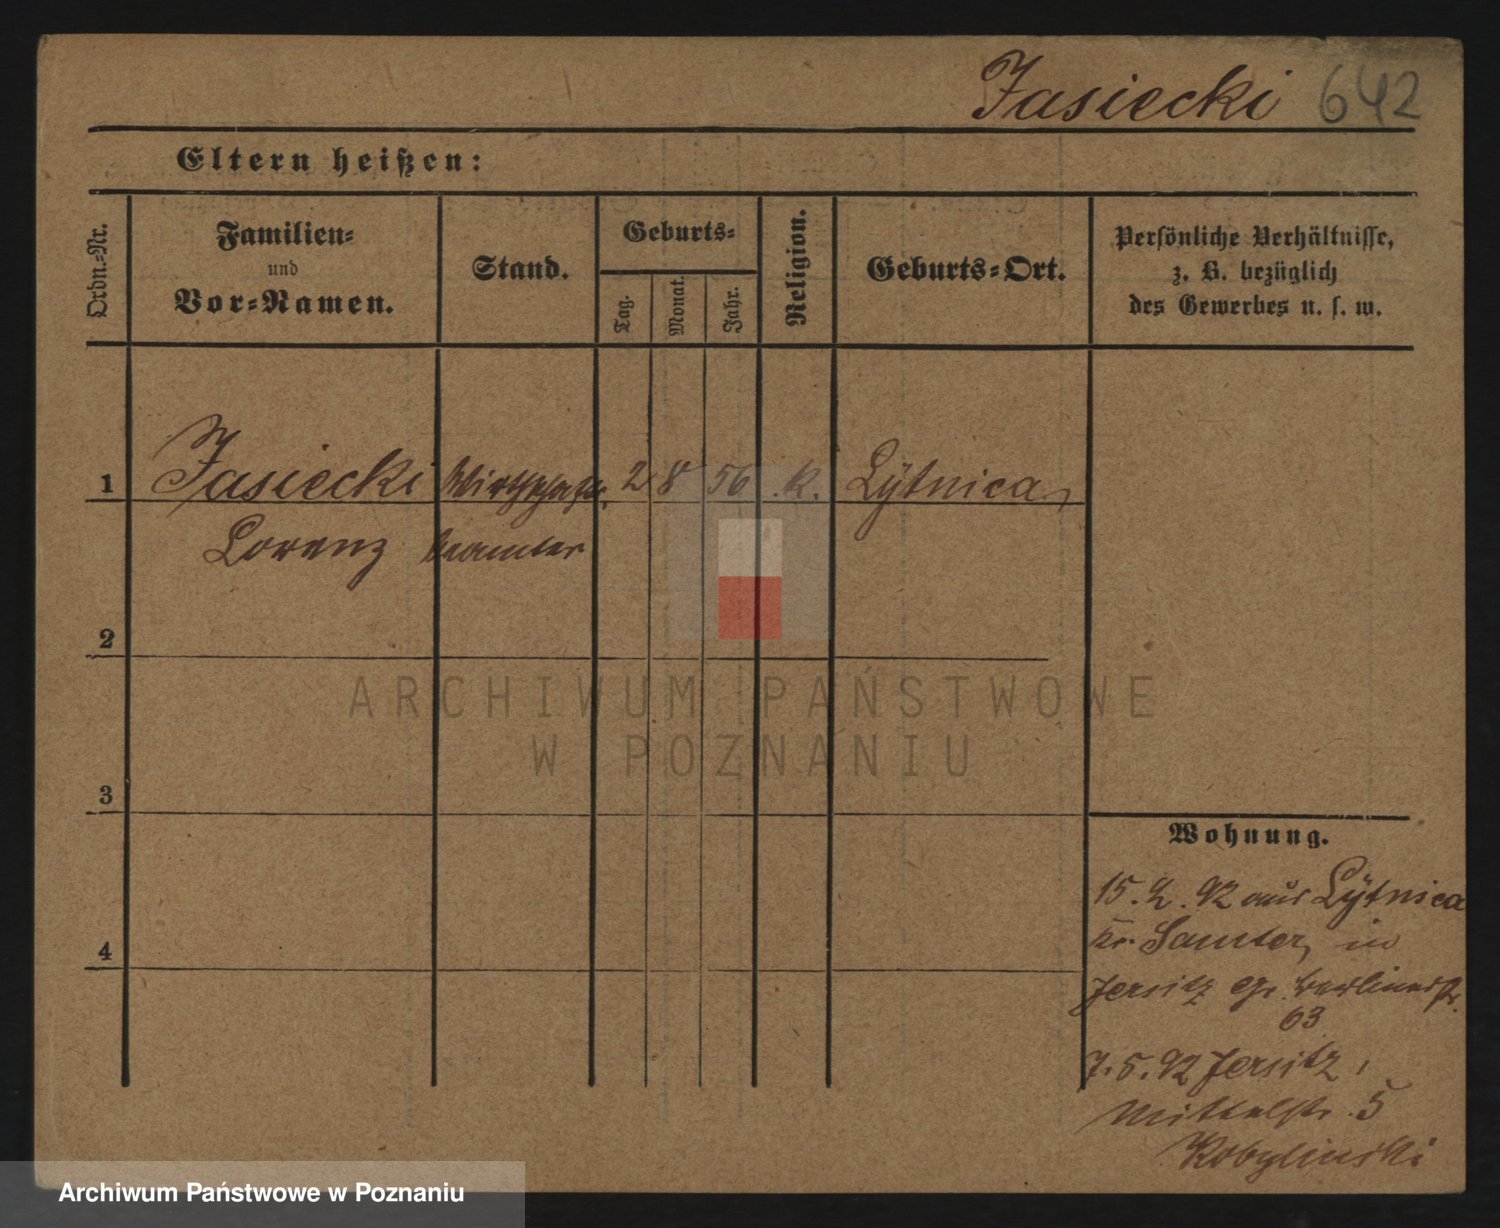 Jasiecki 642
Eltern heißen:
Ordn.-Nr.
Familien-
und
Vor-Namen.
Stand.
Geburts-
Tag.
Monat.
Jahr.
Religion.
Geburts-Ort.
Persönliche Verhältnisse,
z. B. bezüglich
des Gewerbes u. s. w.
1 Jasiecki Wirthschafts 2 8 56 k. Lÿtnica,
Lorenz beamter
2
3
4
Wohnung.
15. 2. 92 aus Lÿtnica
Kr. Samter, in
Jersitz Gr. Berlinerstr.
63
7. 5. 92 Jersitz,
Mittelstr. 5
Kobylinski
ARCHIWUM PAŃSTWOWE
W POZNANIU
Archiwum Państwowe w Poznaniu